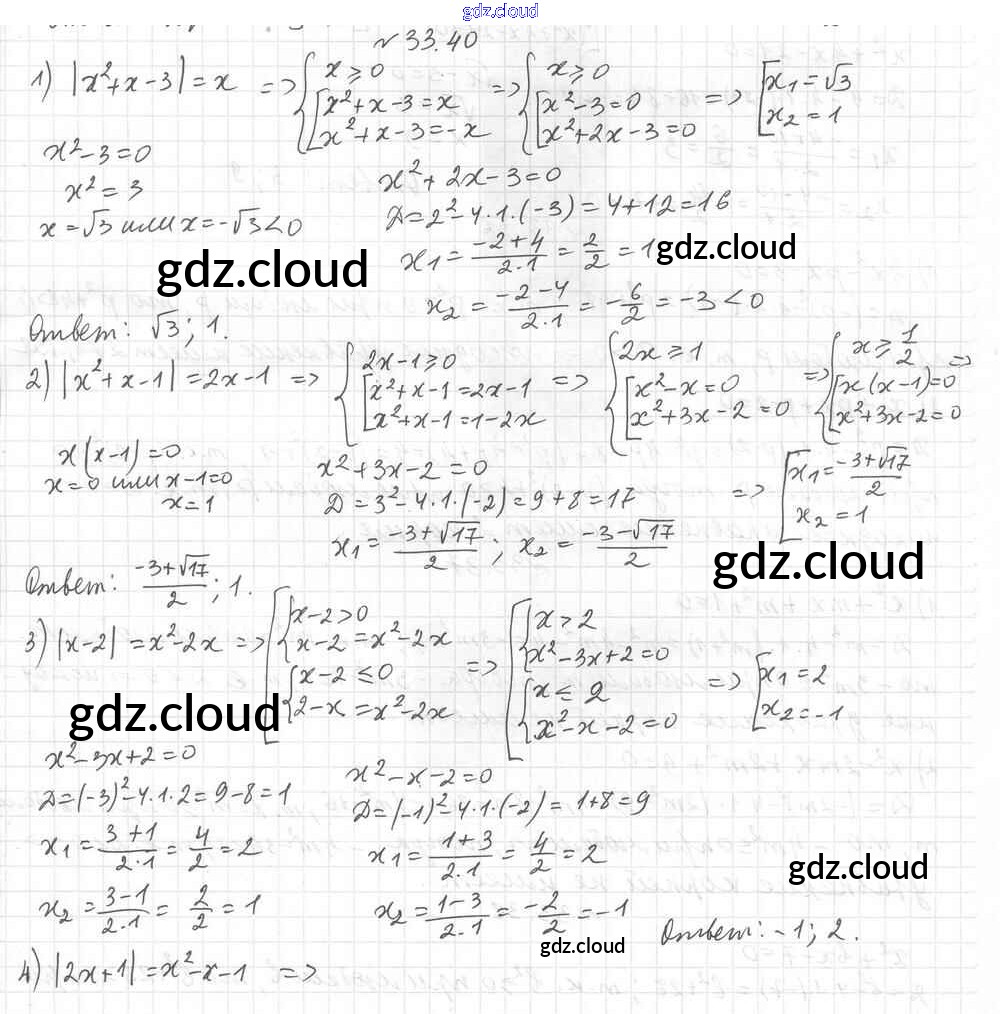 gdz.cloud
№ 33.40
1) |x²+x-3| = x => { x ≥ 0 [ x²+x-3=x x²+x-3=-x => { x ≥ 0 [ x²-3=0 x²+2x-3=0 => [ x₁=√3 x₂=1
x²-3=0
x²=3
x=√3 или x=-√3<0
x²+2x-3=0
Д=2²-4·1·(-3)=4+12=16
x₁=(-2+4)/(2·1)=2/2=1
gdz.cloud
gdz.cloud
x₂=(-2-4)/(2·1)=-6/2=-3<0
Ответ: √3; 1.
2) |x²+x-1|=2x-1 => { 2x-1≥0 [ x²+x-1=2x-1 x²+x-1=1-2x => { 2x≥1 [ x²-x=0 x²+3x-2=0 => { x≥1/2 [ x(x-1)=0 x²+3x-2=0 =>
=> [ x₁=(-3+√17)/2 x₂=1
x(x-1)=0
x=0 или x-1=0
x=1
x²+3x-2=0
Д=3²-4·1·(-2)=9+8=17
x₁=(-3+√17)/2; x₂=(-3-√17)/2
gdz.cloud
Ответ: (-3+√17)/2; 1.
3) |x-2|=x²-2x => [ { x-2>0 x-2=x²-2x { x-2≤0 2-x=x²-2x => [ { x>2 x²-3x+2=0 { x≤2 x²-x-2=0 => [ x₁=2 x₂=-1
gdz.cloud
x²-3x+2=0
Д=(-3)²-4·1·2=9-8=1
x₁=(3+1)/(2·1)=4/2=2
x₂=(3-1)/(2·1)=2/2=1
x²-x-2=0
Д=(-1)²-4·1·(-2)=1+8=9
x₁=(1+3)/(2·1)=4/2=2
x₂=(1-3)/(2·1)=-2/2=-1
gdz.cloud
gdz.cloud
Ответ: -1; 2.
4) |2x+1|=x²-x-1 =>